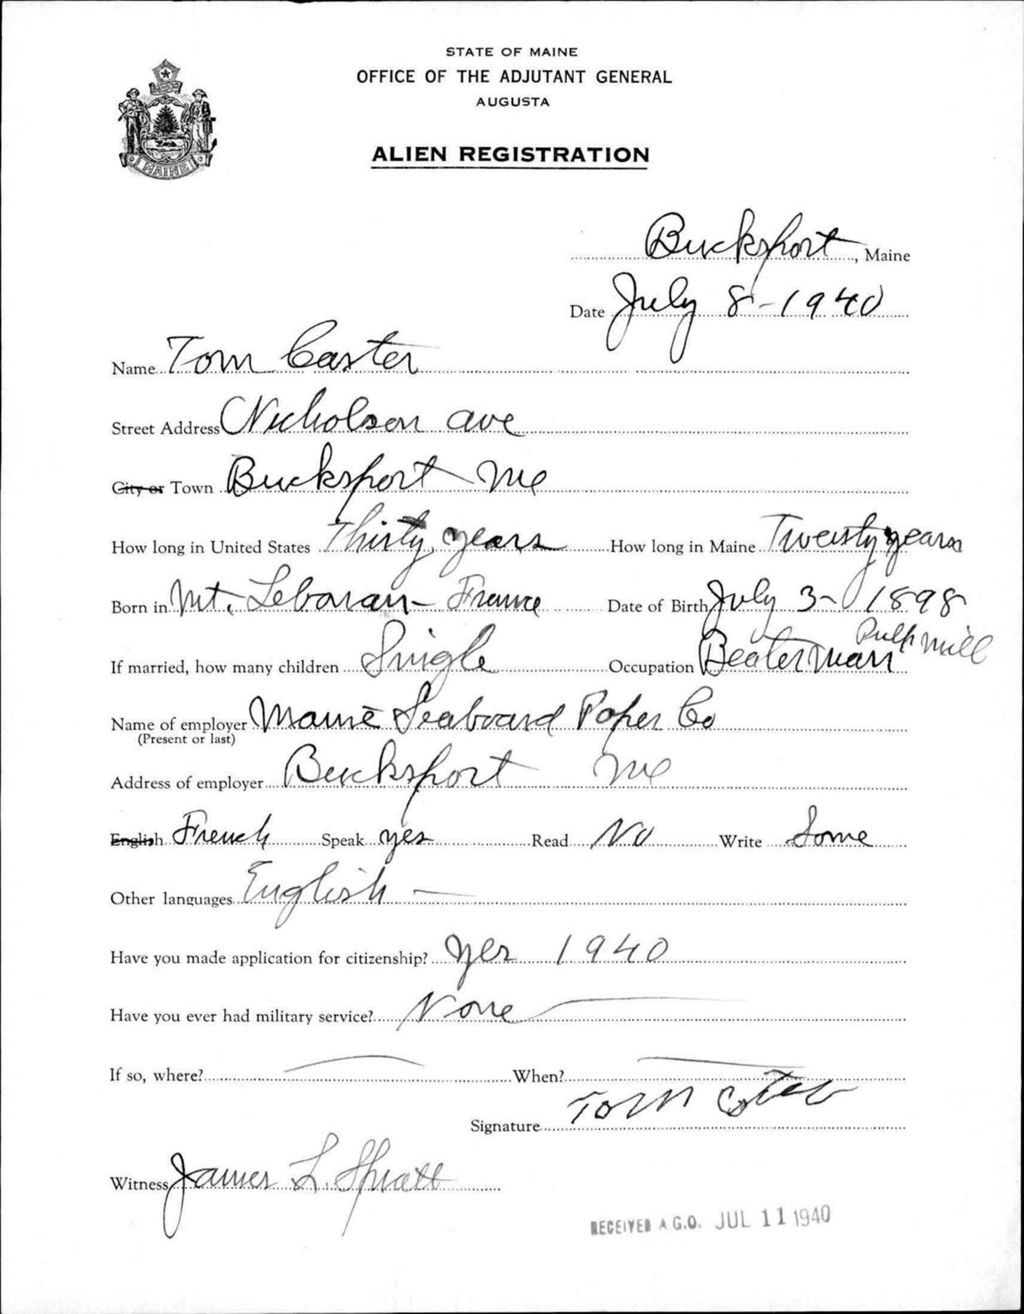 STATE OF MAINE
OFFICE OF THE ADJUTANT GENERAL
AUGUSTA
ALIEN REGISTRATION
MAINE
Bucksport, Maine
Date July 8 - 1940
Name Tom Caster
Street Address Nicholson ave
City or Town Bucksport Me
How long in United States Thirty years How long in Maine Twenty years
Born in Mt. Lebanan - France Date of Birth July 3 - 1898
If married, how many children Single Occupation Beaterman Pulp Mill
Name of employer Maine Seaboard Paper Co
(Present or last)
Address of employer Bucksport Me
English French Speak yes Read No Write Some
Other languages English -
Have you made application for citizenship? Yes 1940
Have you ever had military service? None
If so, where? When?
Signature Tom
Witness James L. Spratt
RECEIVED A.G.O. JUL 11 1940